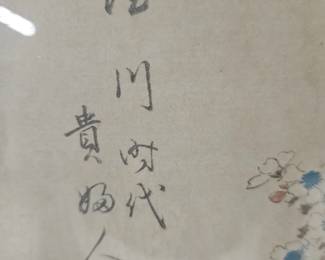 川时代
貴婦人